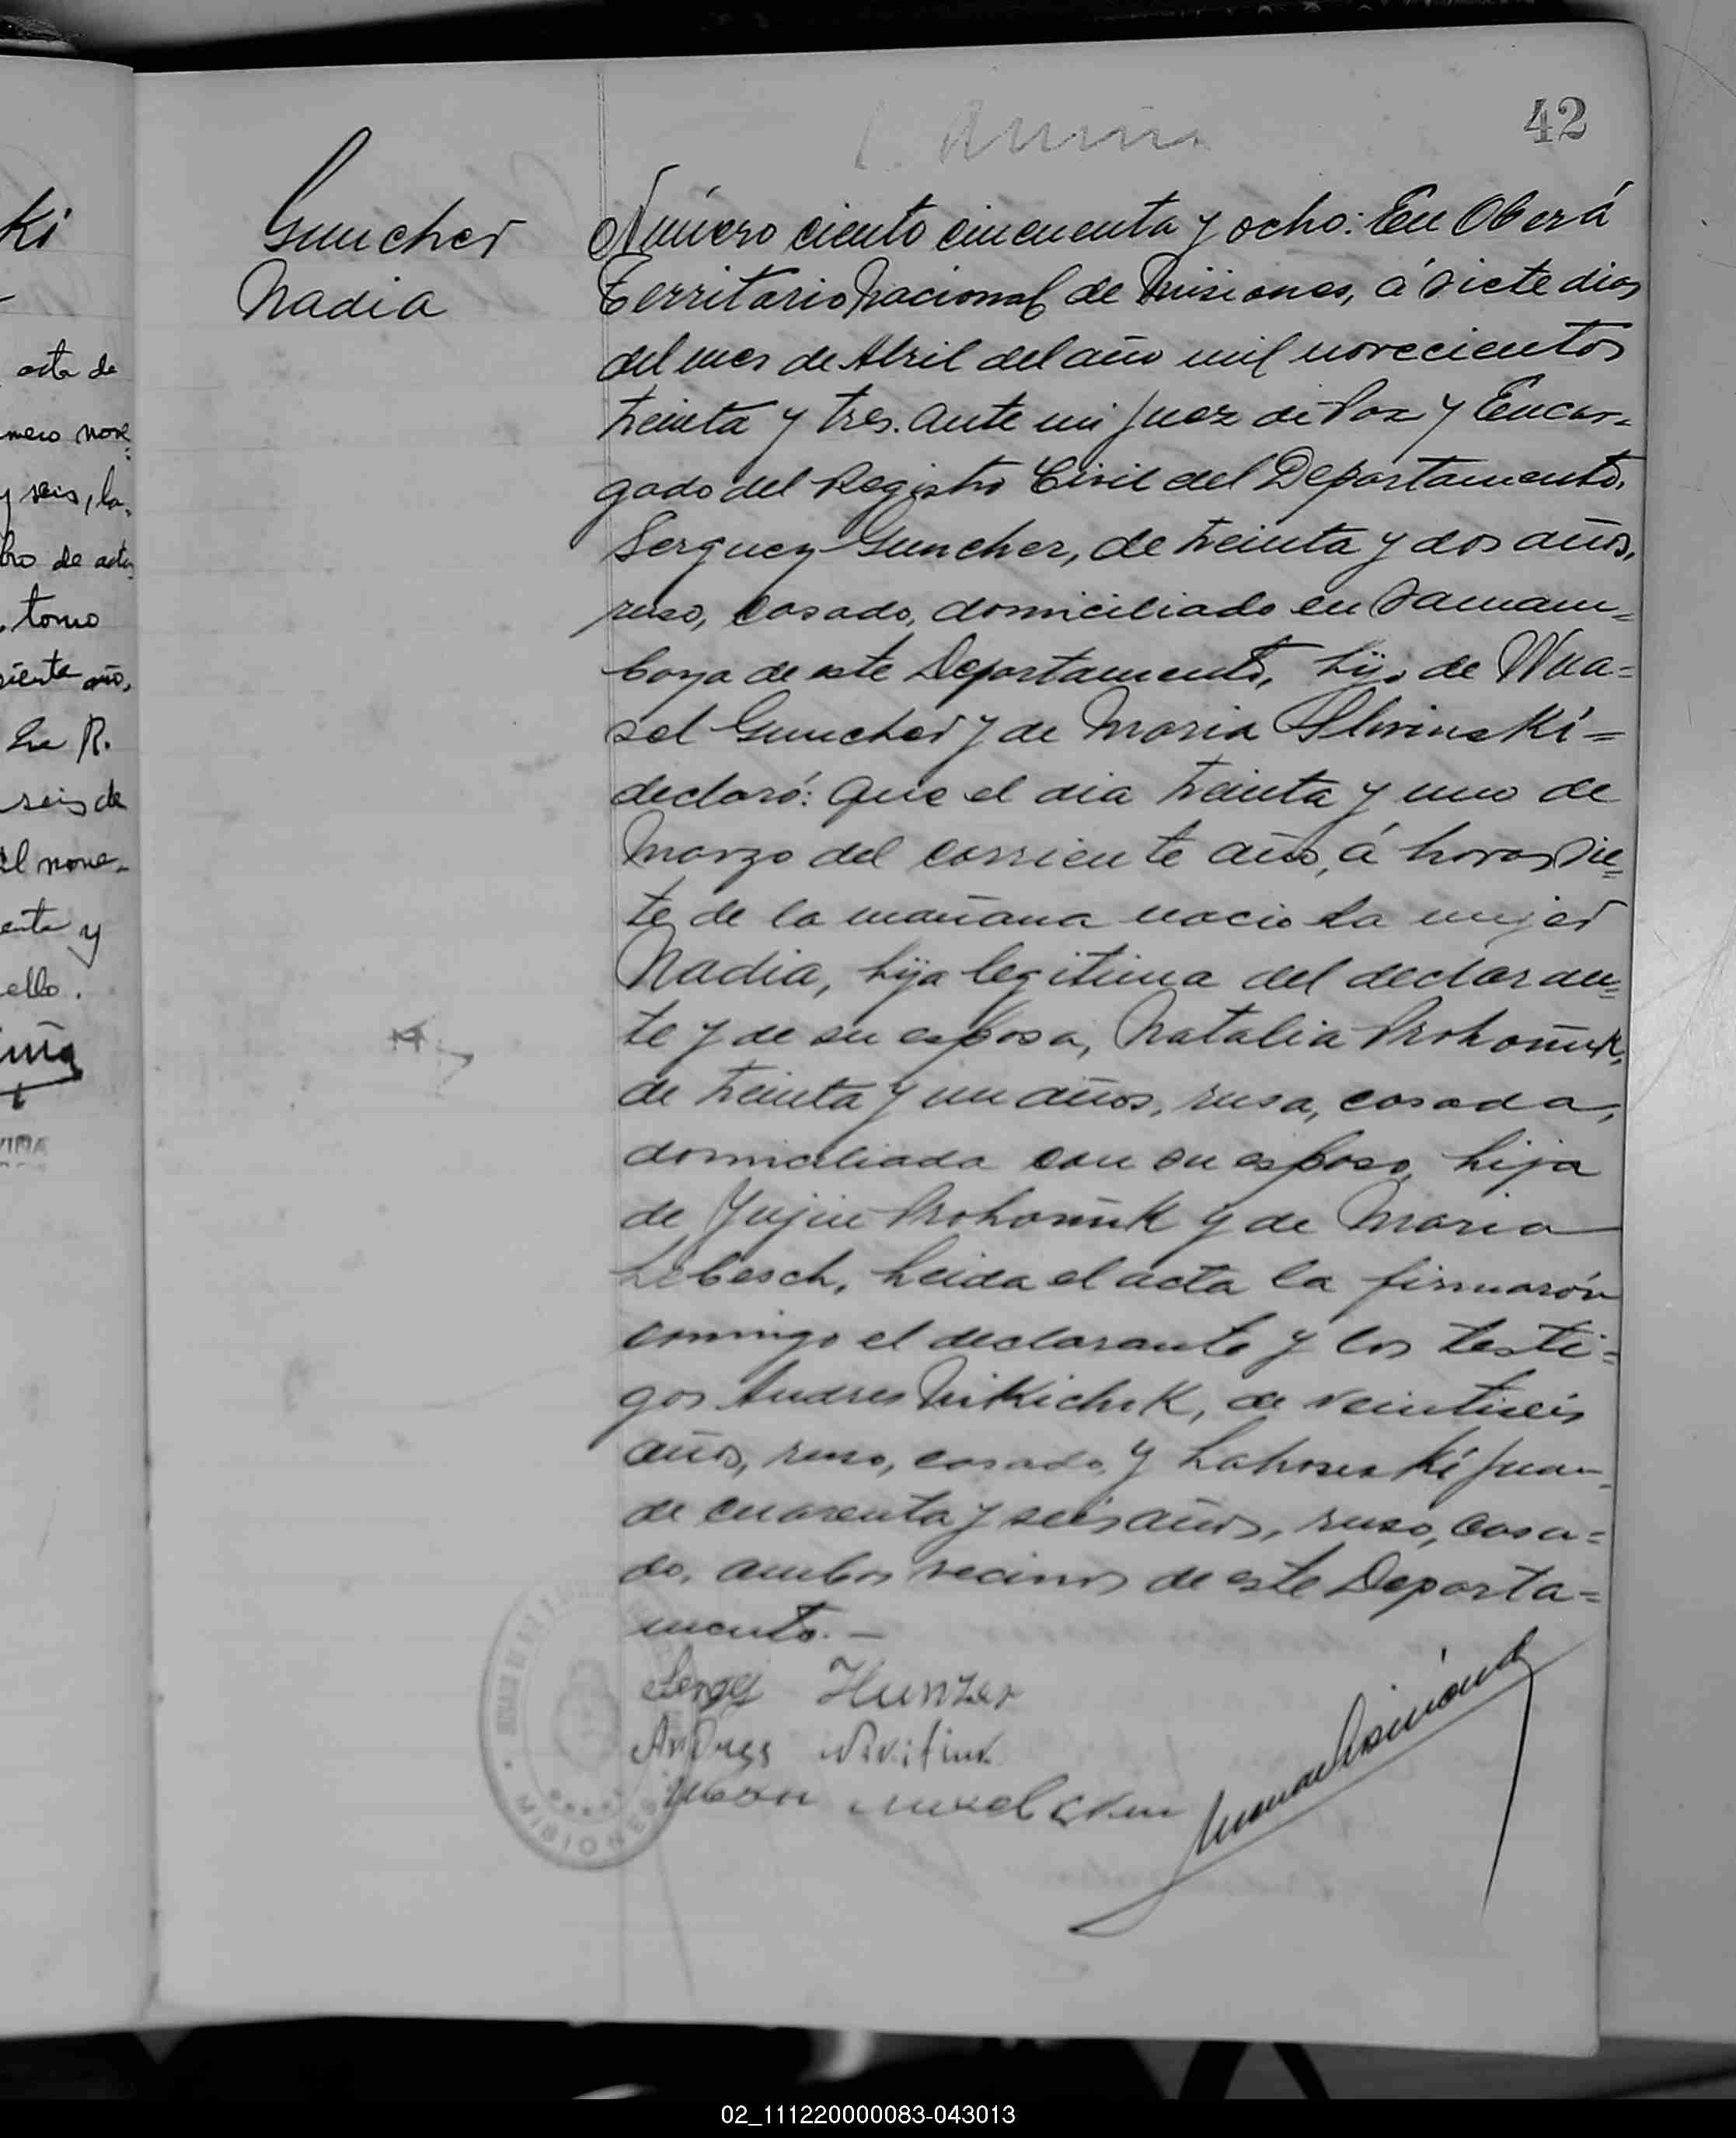 42
Guncher
Nadia
Número ciento cincuenta y ocho: En Oberá
Territorio Nacional de Misiones, á siete dias
del mes de Abril del año mil novecientos
treinta y tres. Ante mi Juez de Paz y Encar-
gado del Registro Civil del Departamento,
Serguey Guncher, de treinta y dos años,
ruso, casado, domiciliado en Samam-
baya de este Departamento, hijo de Wua-
sel Guncher y de Maria Slivinski-
declaró: Que el dia treinta y uno de
Marzo del corriente año, á horas sie-
te de la mañana nacio la mujer
Nadia, hija legitima del declaran-
te y de su esposa, Natalia Prohoñuk,
de treinta y un años, rusa, casada,
domiciliada con su esposo, hija
de Prohoñuk y de Maria
Lebesch, Leida el acta la firmarón
conmigo el declarante y los testi-
gos Andres Nikichuk, de veintiseis
años, ruso, casado, y Juan
de cuarenta y seis años, ruso, casa-
do, ambos vecinos de este Departa-
mento.-
Sergej Hunzer
MISIONES
ki
acta de
y seis, la
de acta
tomo
seis de
y
02_111220000083-043013